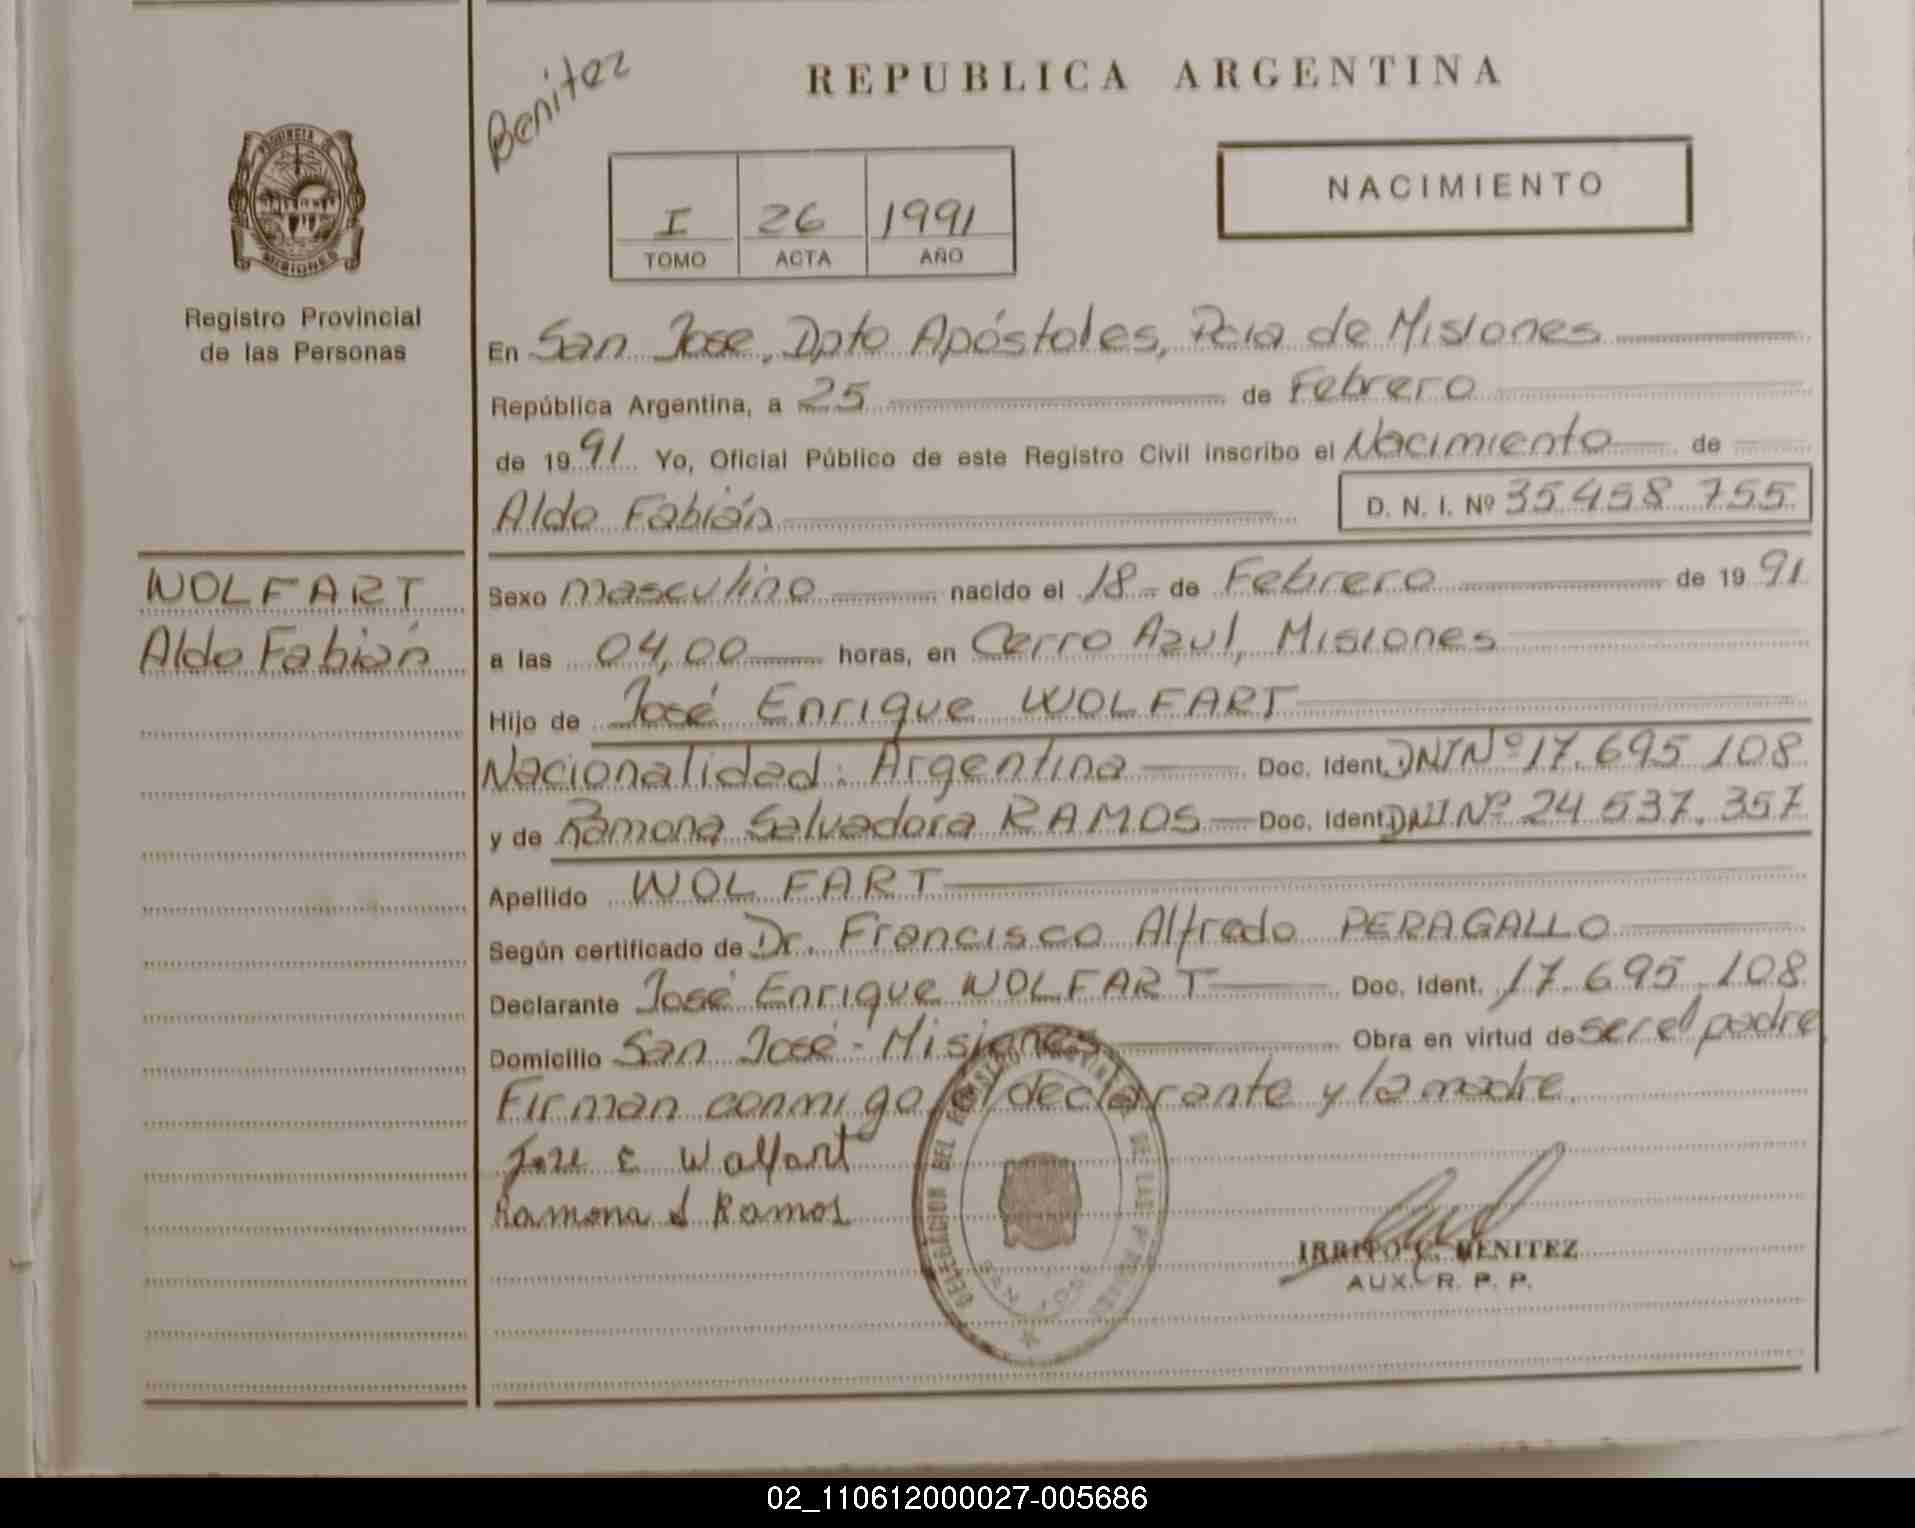 REPUBLICA ARGENTINA
Benitez
NACIMIENTO
I 26 1991
TOMO ACTA AÑO
PROVINCIA DE
MISIONES
Registro Provincial
de las Personas
En San Jose, Dpto Apóstoles, Pcia de Misiones
República Argentina, a 25 de Febrero
de 1991 Yo, Oficial Público de este Registro Civil inscribo el Nacimiento de
Aldo Fabián D. N. I. Nº 35.458.755
WOLFART
Aldo Fabián
Sexo masculino nacido el 18 de Febrero de 1991
a las 04,00 horas, en Cerro Azul, Misiones
Hijo de José Enrique WOLFART
Nacionalidad: Argentina Doc. Ident. DNI Nº 17.695.108
y de Ramona Salvadora RAMOS Doc. Ident. DNI Nº 24.537.357
Apellido WOLFART
Según certificado de Dr. Francisco Alfredo PERAGALLO
Declarante José Enrique WOLFART Doc. Ident. 17.695.108
Domicilio San José - Misiones Obra en virtud de ser el padre
Firman conmigo el declarante y la madre.
Jose E Wolfart
Ramona S Ramos
DELEGACION DEL REGISTRO PROVINCIAL DE LAS PERSONAS
SAN JOSE
BENITEZ
AUX. R. P. P.
02_110612000027-005686